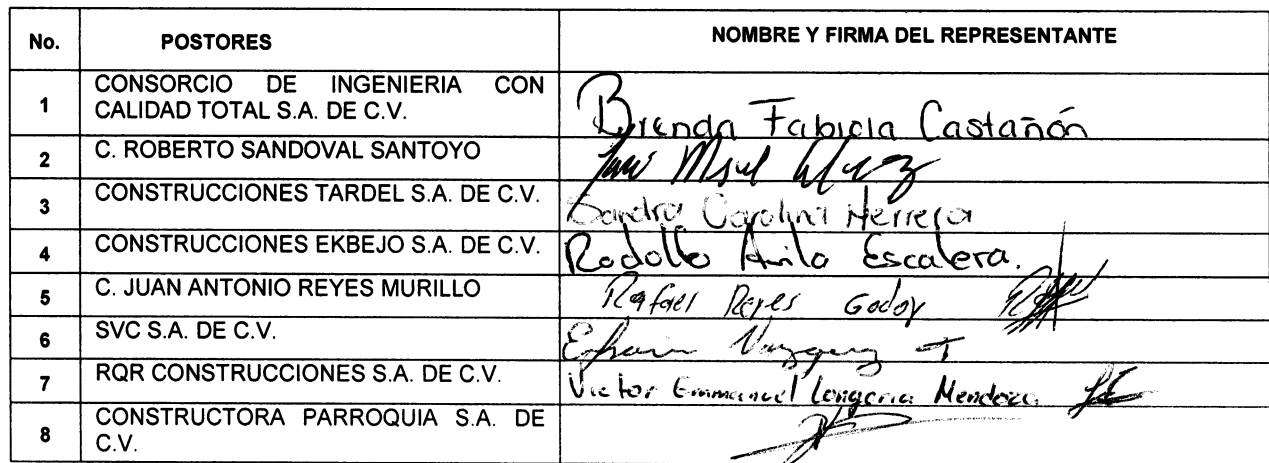 No. POSTORES NOMBRE Y FIRMA DEL REPRESENTANTE
1 CONSORCIO DE INGENIERIA CON
CALIDAD TOTAL S.A. DE C.V.
Brenda Fabiola Castañón
2 C. ROBERTO SANDOVAL SANTOYO
3 CONSTRUCCIONES TARDEL S.A. DE C.V. Sandra Carolina Herrera
4 CONSTRUCCIONES EKBEJO S.A. DE C.V. Rodolfo Avila Escalera.
5 C. JUAN ANTONIO REYES MURILLO Rafael Reyes Godoy
6 SVC S.A. DE C.V. Efrain Vazquez T
7 RQR CONSTRUCCIONES S.A. DE C.V. Victor Emmanuel Longoria Mendoza
8 CONSTRUCTORA PARROQUIA S.A. DE
C.V.